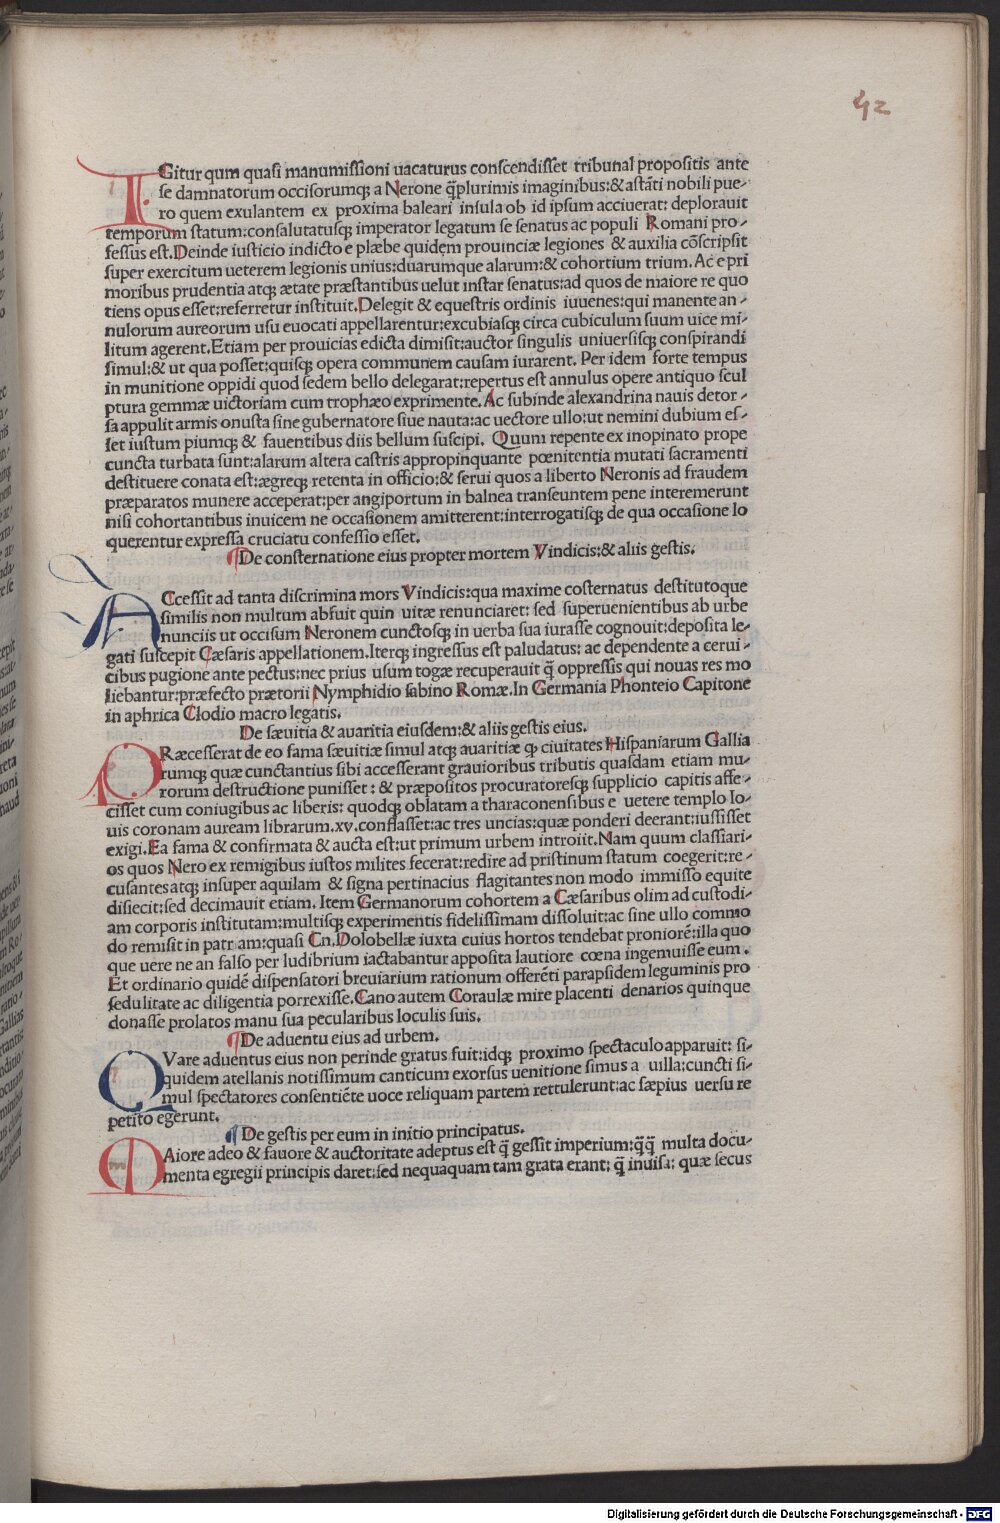 42
IGitur qum quasi manumissioni uacaturus conscendisset tribunal propositis ante
se damnatorum occisorumqꝫ a Nerone q̃plurimis imaginibus:& astãti nobili pue-
ro quem exulantem ex proxima baleari insula ob id ipsum acciuerat: deplorauit
temporum statum:consalutatusqꝫ imperator legatum se senatus ac populi Romani pro-
fessus est.Deinde iusticio indicto e plæbe quidem prouinciæ legiones & auxilia cõscripsit
super exercitum ueterem legionis unius:duarumque alarum:& cohortium trium.Ac e pri
moribus prudentia atqꝫ ætate præstantibus uelut instar senatus:ad quos de maiore re quo
tiens opus esset:referretur instituit.Delegit & equestris ordinis iuuenes:qui manente an-
nulorum aureorum usu euocati appellarentur:excubiasqꝫ circa cubiculum suum uice mi-
litum agerent.Etiam per prouicias edicta dimisit:auctor singulis uniuersisqꝫ conspirandi
simul:& ut qua posset:quisqꝫ opera communem causam iurarent. Per idem forte tempus
in munitione oppidi quod sedem bello delegarat:repertus est annulus opere antiquo scul
ptura gemmæ uictoriam cum trophæo exprimente.Ac subinde alexandrina nauis detor-
sa appulit armis onusta sine gubernatore siue nauta:ac uectore ullo:ut nemini dubium es-
set iustum piumqꝫ & fauentibus diis bellum suscipi. Quum repente ex inopinato prope
cuncta turbata sunt:alarum altera castris appropinquante pœnitentia mutati sacramenti
destituere conata est:ægreqꝫ retenta in officio:& serui quos a liberto Neronis ad fraudem
præparatos munere acceperat:per angiportum in balnea transeuntem pene interemerunt
nisi cohortantibus inuicem ne occasionem amitterent:interrogatisqꝫ de qua occasione lo
querentur expressa cruciatu confessio esset.
¶De consternatione eius propter mortem Vindicis:& aliis gestis.
ACcessit ad tanta discrimina mors Vindicis:qua maxime costernatus destitutoque
similis non multum abfuit quin uitæ renunciaret: sed superuenientibus ab urbe
nunciis ut occisum Neronem cunctosqꝫ in uerba sua iurasse cognouit:deposita le-
gati suscepit Cæsaris appellationem.Iterqꝫ ingressus est paludatus: ac dependente a cerui-
cibus pugione ante pectus:nec prius usum togæ recuperauit q̃ oppressis qui nouas res mo
liebantur:præfecto prætorii Nymphidio sabino Romæ.In Germania Phonteio Capitone
in aphrica Clodio macro legatis.
De sæuitia & auaritia eiusdem:& aliis gestis eius.
PRæcesserat de eo fama sæuitiæ simul atqꝫ auaritiæ ꝙ ciuitates Hispaniarum Gallia
rumqꝫ quæ cunctantius sibi accesserant grauioribus tributis quasdam etiam mu-
rorum destructione punisset: & præpositos procuratoresqꝫ supplicio capitis affe-
cisset cum coniugibus ac liberis: quodqꝫ oblatam a tharaconensibus e uetere templo Io-
uis coronam auream librarum.xv.conflasset:ac tres uncias:quæ ponderi deerant:iussisset
exigi.Ea fama & confirmata & aucta est:ut primum urbem introiit.Nam quum classiari-
os quos Nero ex remigibus iustos milites fecerat:redire ad pristinum statum coegerit:re-
cusantes atqꝫ insuper aquilam & signa pertinacius flagitantes non modo immisso equite
disiecit:sed decimauit etiam. Item Germanorum cohortem a Cæsaribus olim ad custodi-
am corporis institutam:multisqꝫ experimentis fidelissimam dissoluit:ac sine ullo commo
do remisit in patr am:quasi Cn.Dolobellæ iuxta cuius hortos tendebat proniorẽ:illa quo
que uere ne an falso per ludibrium iactabantur apposita lautiore cœna ingemuisse eum.
Et ordinario quidẽ dispensatori breuiarium rationum offerẽti parapsidem leguminis pro
sedulitate ac diligentia porrexisse.Cano autem Coraulæ mire placenti denarios quinque
donasse prolatos manu sua pecularibus loculis suis.
¶De aduentu eius ad urbem.
QVare aduentus eius non perinde gratus fuit:idqꝫ proximo spectaculo apparuit: si-
quidem atellanis notissimum canticum exorsus uenitione simus a uilla:cuncti si-
mul spectatores consentiẽte uoce reliquam partem rettulerunt:ac sæpius uersu re
petito egerunt.
¶De gestis per eum in initio principatus.
MAiore adeo & fauore & auctoritate adeptus est q̃ gessit imperium:q̃q̃ multa docu-
menta egregii principis daret:sed nequaquam tam grata erant: q̃ inuisa: quæ secus
Digitalisierung gefördert durch die Deutsche Forschungsgemeinschaft - DFG